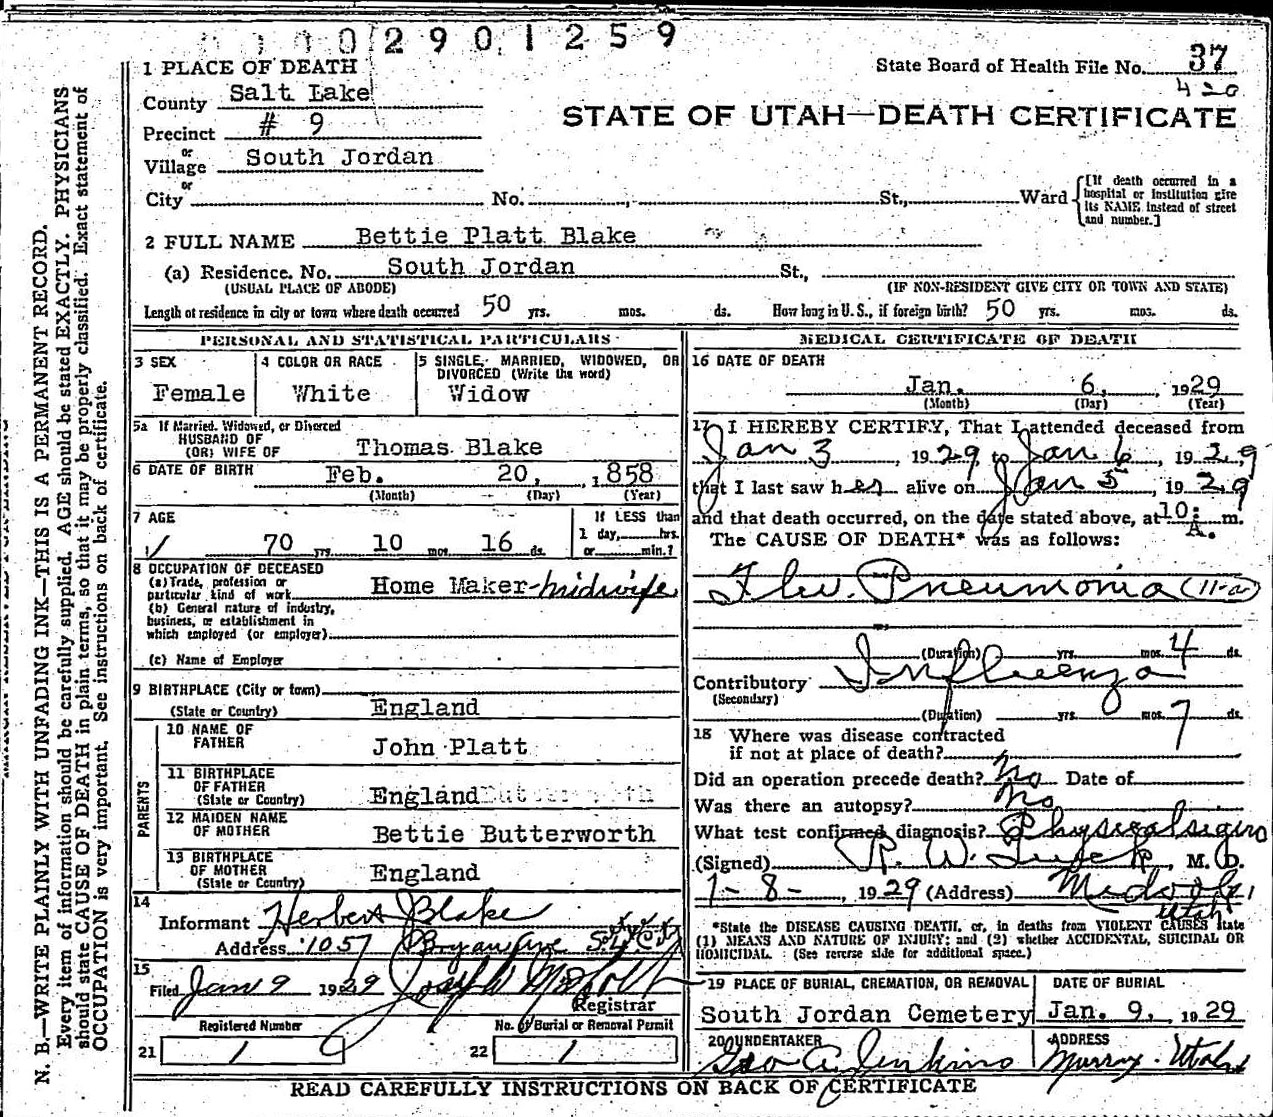 0002901259
1 PLACE OF DEATH
State Board of Health File No. 37
420
County Salt Lake
STATE OF UTAH—DEATH CERTIFICATE
Precinct # 9
or
Village South Jordan
or
City No. St., Ward [If death occurred in a hospital or institution give its NAME instead of street and number.]
2 FULL NAME Bettie Platt Blake
(a) Residence. No. South Jordan St.,
(USUAL PLACE OF ABODE) (IF NON-RESIDENT GIVE CITY OR TOWN AND STATE)
Length of residence in city or town where death occurred 50 yrs. mos. ds. How long in U. S., if foreign birth? 50 yrs. mos. ds.
PERSONAL AND STATISTICAL PARTICULARS
3 SEX
Female
4 COLOR OR RACE
White
5 SINGLE, MARRIED, WIDOWED, OR
DIVORCED (Write the word)
Widow
5a If Married, Widowed, or Divorced
HUSBAND OF
(OR) WIFE OF Thomas Blake
6 DATE OF BIRTH Feb. 20, 1858
(Month) (Day) (Year)
7 AGE
70 yrs. 10 mos. 16 ds.
If LESS than
1 day, hrs.
or min.?
8 OCCUPATION OF DECEASED
(a) Trade, profession or
particular kind of work Home Maker-midwife
(b) General nature of industry,
business, or establishment in
which employed (or employer)
(c) Name of Employer
9 BIRTHPLACE (City or town)
(State or Country) England
PARENTS
10 NAME OF
FATHER John Platt
11 BIRTHPLACE
OF FATHER
(State or Country) England
12 MAIDEN NAME
OF MOTHER Bettie Butterworth
13 BIRTHPLACE
OF MOTHER
(State or Country) England
14
Informant Herbert Blake
Address 1057 Bryan Ave S.L. City
15
Filed Jan 9 1929
Registrar
Registered Number
21 1
No. of Burial or Removal Permit
22 1
MEDICAL CERTIFICATE OF DEATH
16 DATE OF DEATH
Jan. 6, 1929
(Month) (Day) (Year)
17 I HEREBY CERTIFY, That I attended deceased from
Jan 3, 1929 to Jan 6, 1929
that I last saw her alive on Jan 5, 1929
and that death occurred, on the date stated above, at 10: A. m.
The CAUSE OF DEATH* was as follows:
Flu. Pneumonia (11-a)
(Duration) yrs. mos. 4 ds.
Contributory Influenza
(Secondary)
(Duration) yrs. mos. 7 ds.
18 Where was disease contracted
if not at place of death?
Did an operation precede death? No Date of
Was there an autopsy? No
What test confirmed diagnosis? Physical signs
(Signed) R. W. M. D.
1-8-, 1929 (Address) Midvale, Utah
*State the DISEASE CAUSING DEATH, or, in deaths from VIOLENT CAUSES state
(1) MEANS AND NATURE OF INJURY; and (2) whether ACCIDENTAL, SUICIDAL OR
HOMICIDAL. (See reverse side for additional space.)
19 PLACE OF BURIAL, CREMATION, OR REMOVAL
South Jordan Cemetery
DATE OF BURIAL
Jan. 9, 1929
20 UNDERTAKER
Geo A. Jenkins
ADDRESS
Murray - Utah
READ CAREFULLY INSTRUCTIONS ON BACK OF CERTIFICATE
N. B.—WRITE PLAINLY WITH UNFADING INK—THIS IS A PERMANENT RECORD.
Every item of information should be carefully supplied. AGE should be stated EXACTLY. PHYSICIANS
should state CAUSE OF DEATH in plain terms, so that it may be properly classified. Exact statement of
OCCUPATION is very important. See instructions on back of certificate.